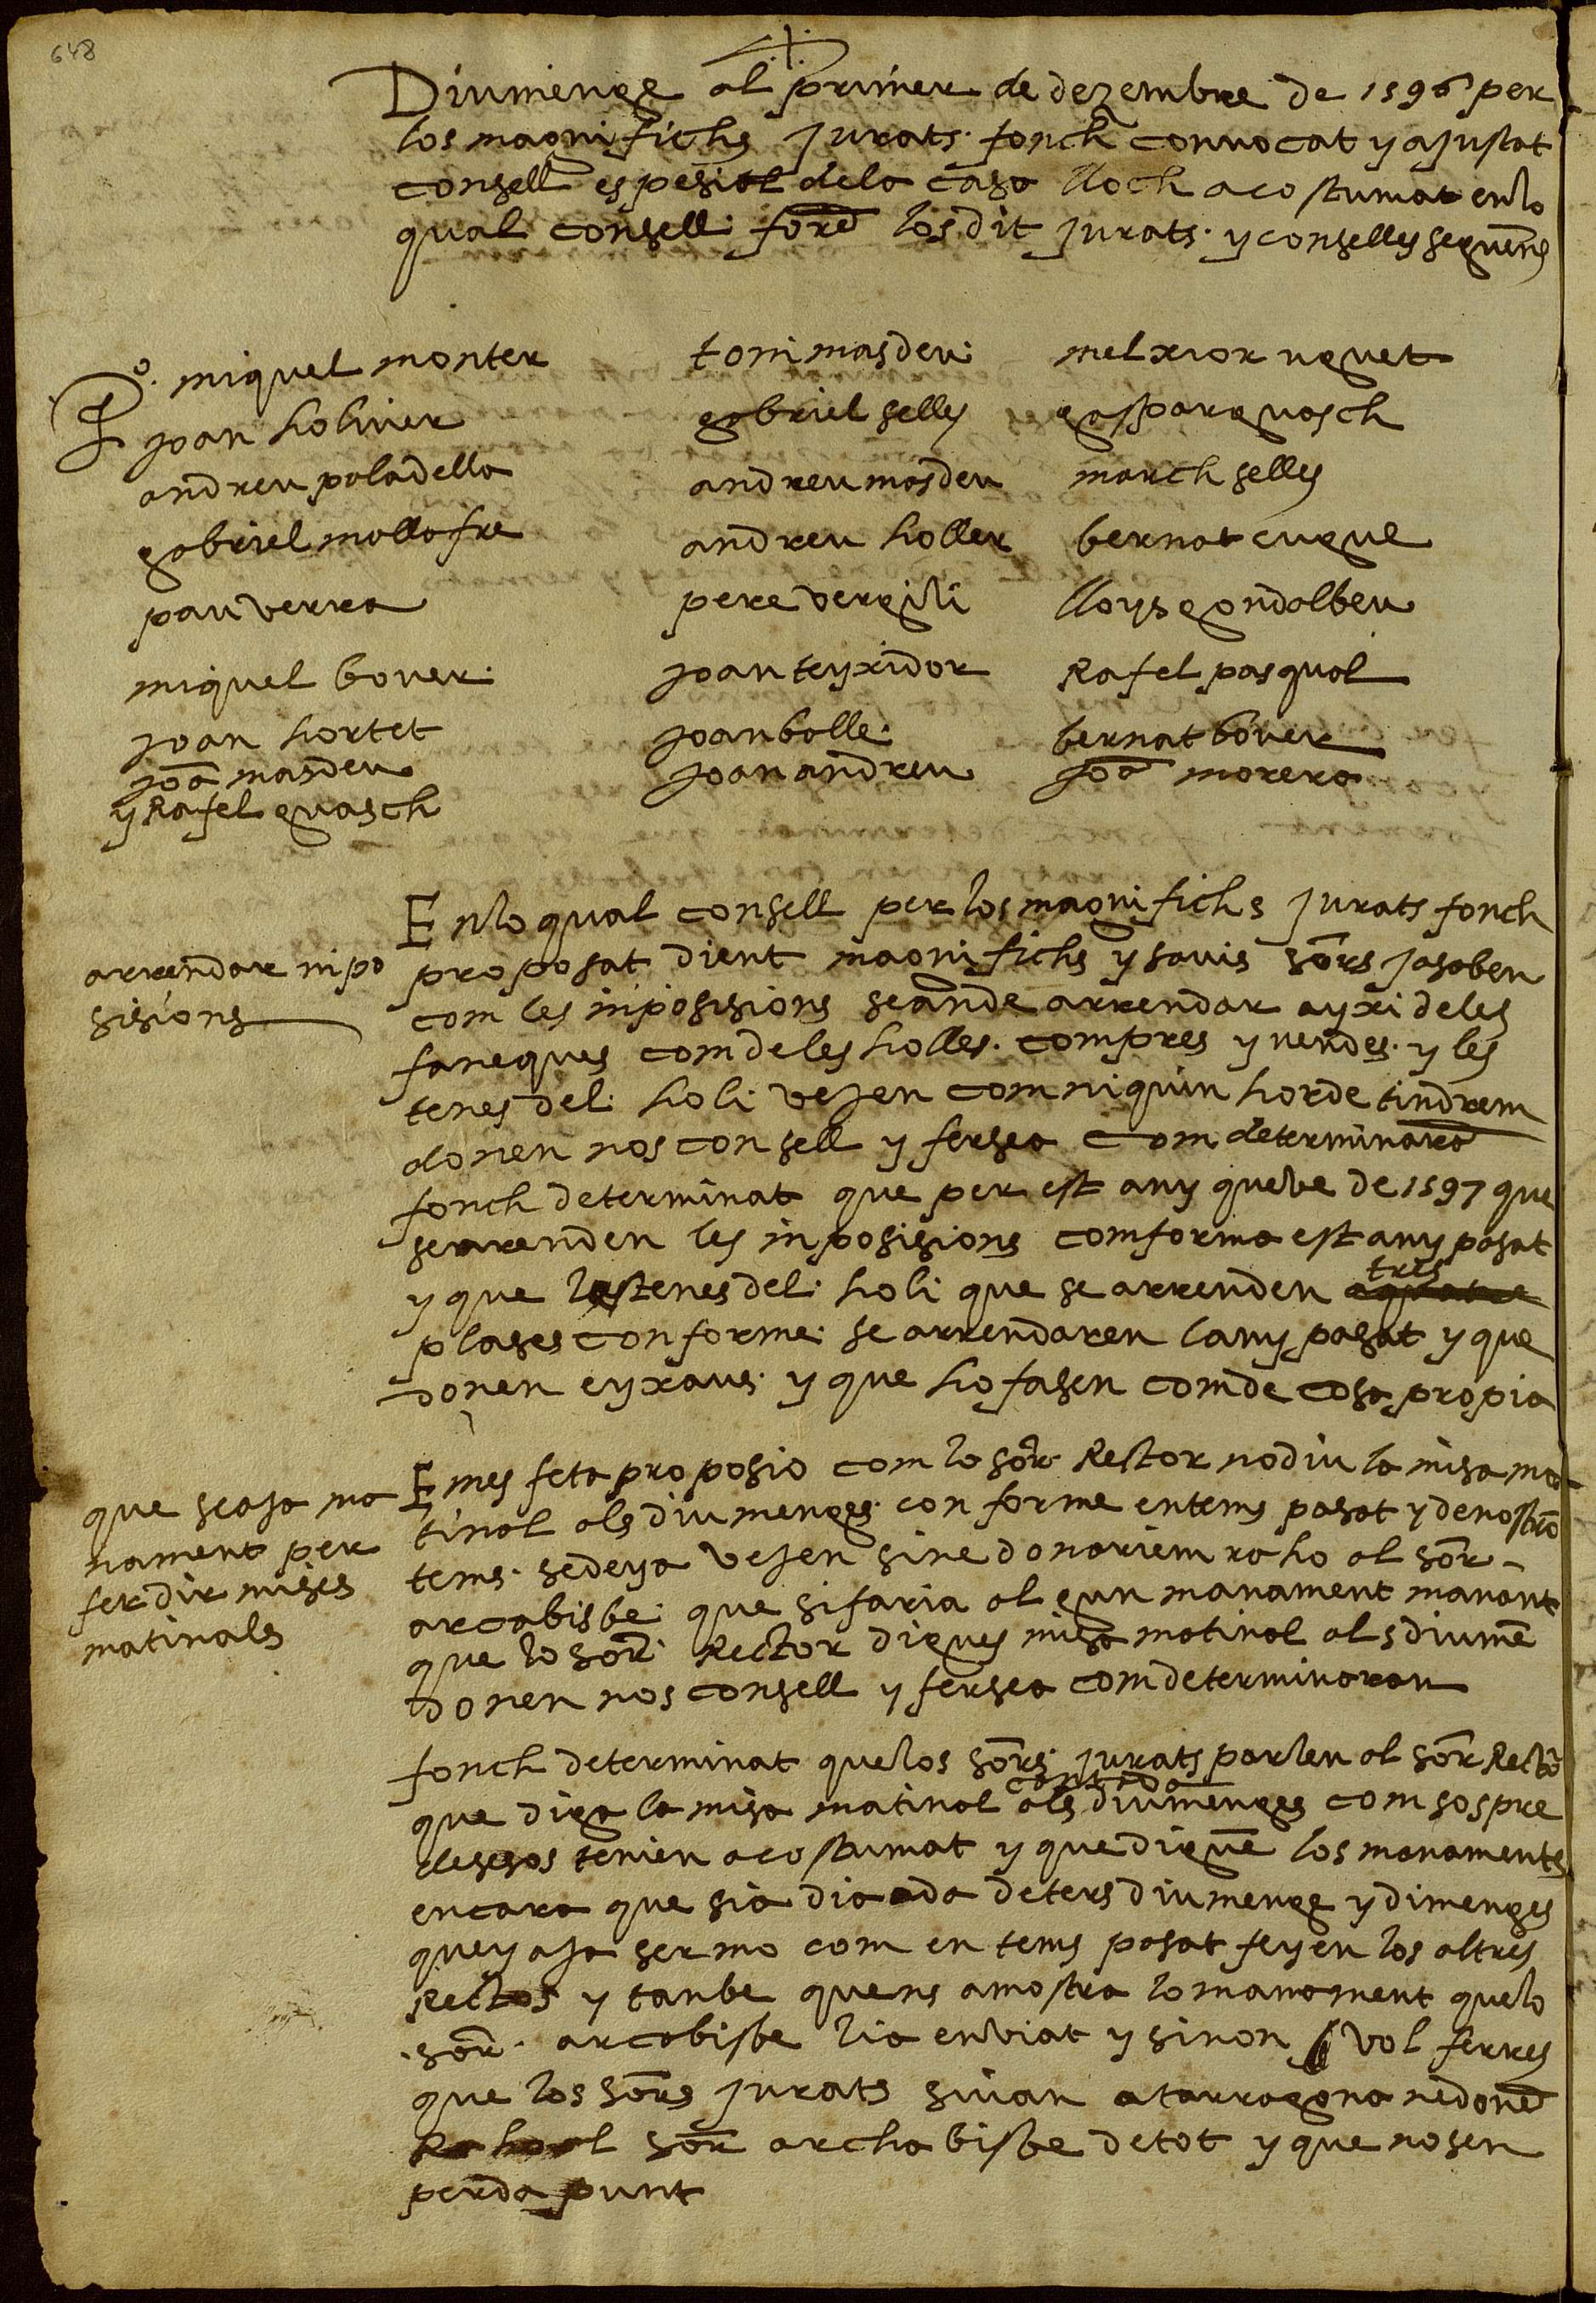 648
Diumenge al primer de dezembre de 1596 per
los magnifichs jurats fonch convocat y ajustat
consell espesial de la casa lloch acostumat en lo
qual consell forē los dit jurats y consellēs seguēns
P.º miquel monter
joan holiver
andreu paladella
gabriel mallafre
pau verra
miquel bover
joan hortet
joā masdeu
y Rafel guasch
toni masdeu
gabriel selles
andreu masdeu
andreu holler
pere vergili
joan teyxidor
joan bolle
joan andreu
melxior uguet
gaspar guasch
march selles
bernat cugul
lloys gondalbeu
Rafel pasqual
bernat bover
joā morera
arrendar inpo
sisions
En lo qual consell per los magnifichs jurats fonch
proposat dient magnifichs y savis sōrs ja saben
com les inposisions sean de arrendar ayxi de les
faneques com de les holles compres y vendes y les
tenes del holi vejen com ni quin horde tindrem
donen nos consell y fersea com determinara
fonch determinat que per est any que ve de 1597 que
se arrenden les inposisions comforma est any pasat
y que les tenes del holi que se arrenden tres
plases conforme se arrendaren lany pasat y que
donen eyxaus y que ho fasen com de cosa propia
que seaja ma
nament per
fer dir mises
matinals
E mes feta proposio com lo sōr Rector no diu la misa ma
tinal als diumenges conforme en tems pasat y de nostrō
tems se deya vejen si ne donariem raho al sōr
arcabisbe que si faria algun manament manant
que lo sōr Rector digues misa matinal als diumē
donen nos consell y fersea com determinaran
fonch determinat que los sōrs jurats parlen al sōr Rectō
que diga la misa matinal als diumenges com sos pre
desesos tenien acostumat y que diguē los manaments
encara que sia diada de ters diumenge y dimenges
quey aja sermo com en tems pasat feyen los altres
Rectos y tanbe quens amostra lo manament que lo
sōr arcabisbe lia enviat y si non vol fer res
que los sōrs jurats sivan a tarragona ne donē
Raho al sōr archabisbe de tot y que no sen
perda punt